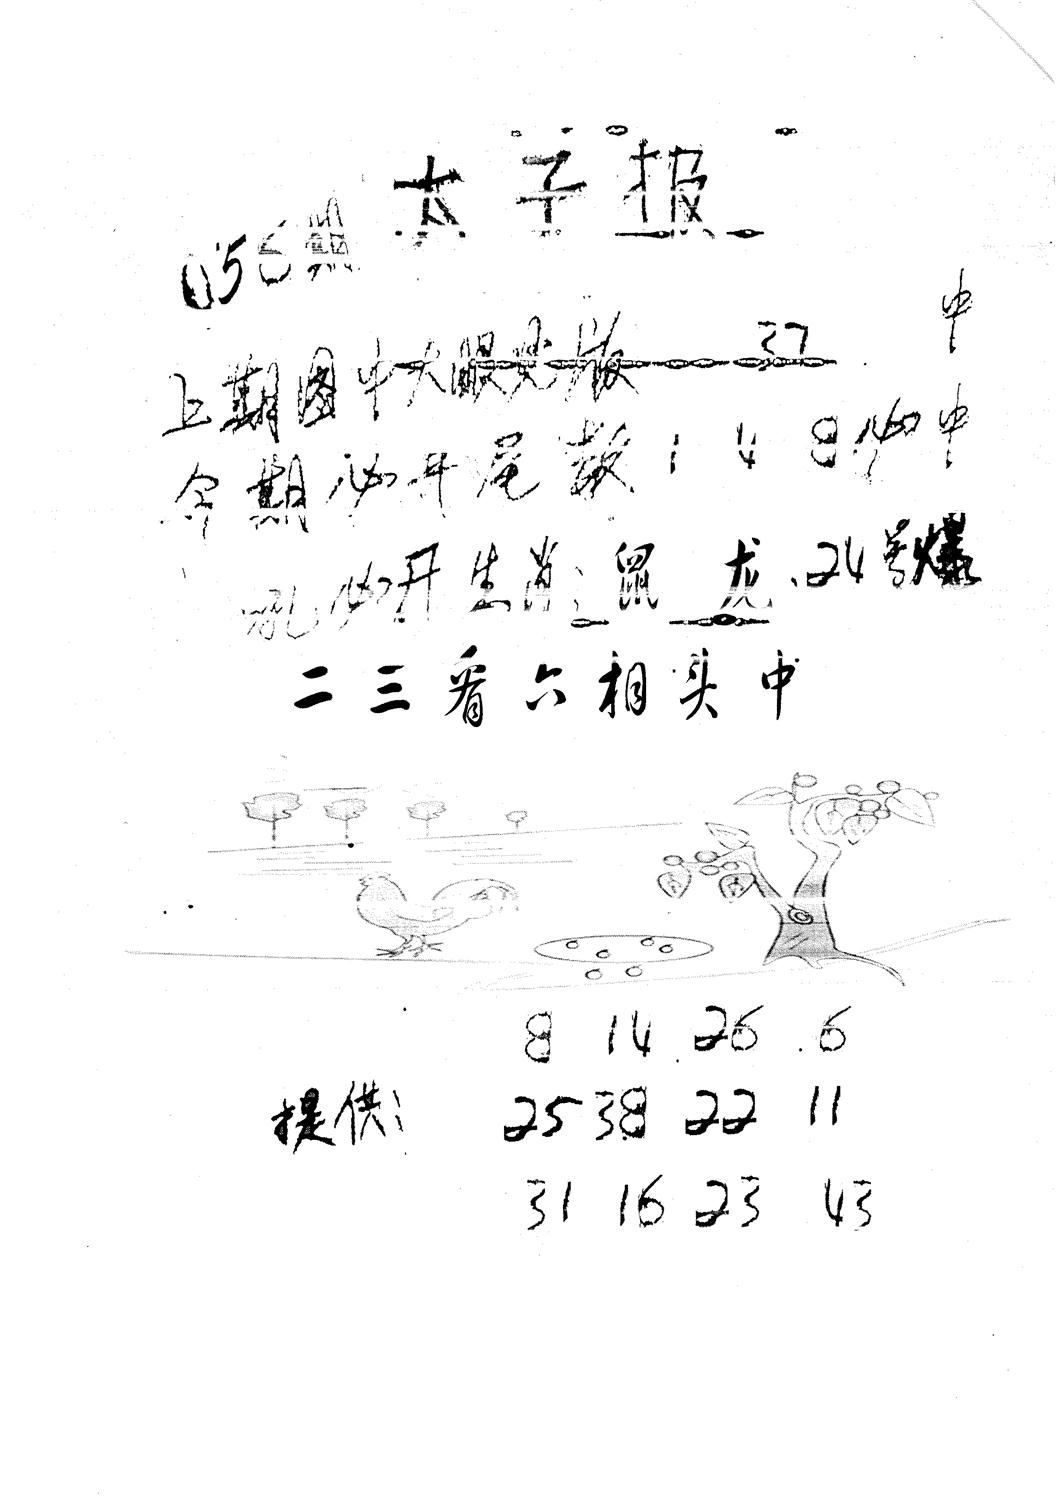 太子报
056期
上期图中大眼光版 37 中
今期必开尾数 1 4 8 必中
必开生肖:鼠 龙.24号爆
二三看六相头中
8 14 26 6
提供: 25 38 22 11
31 16 23 43